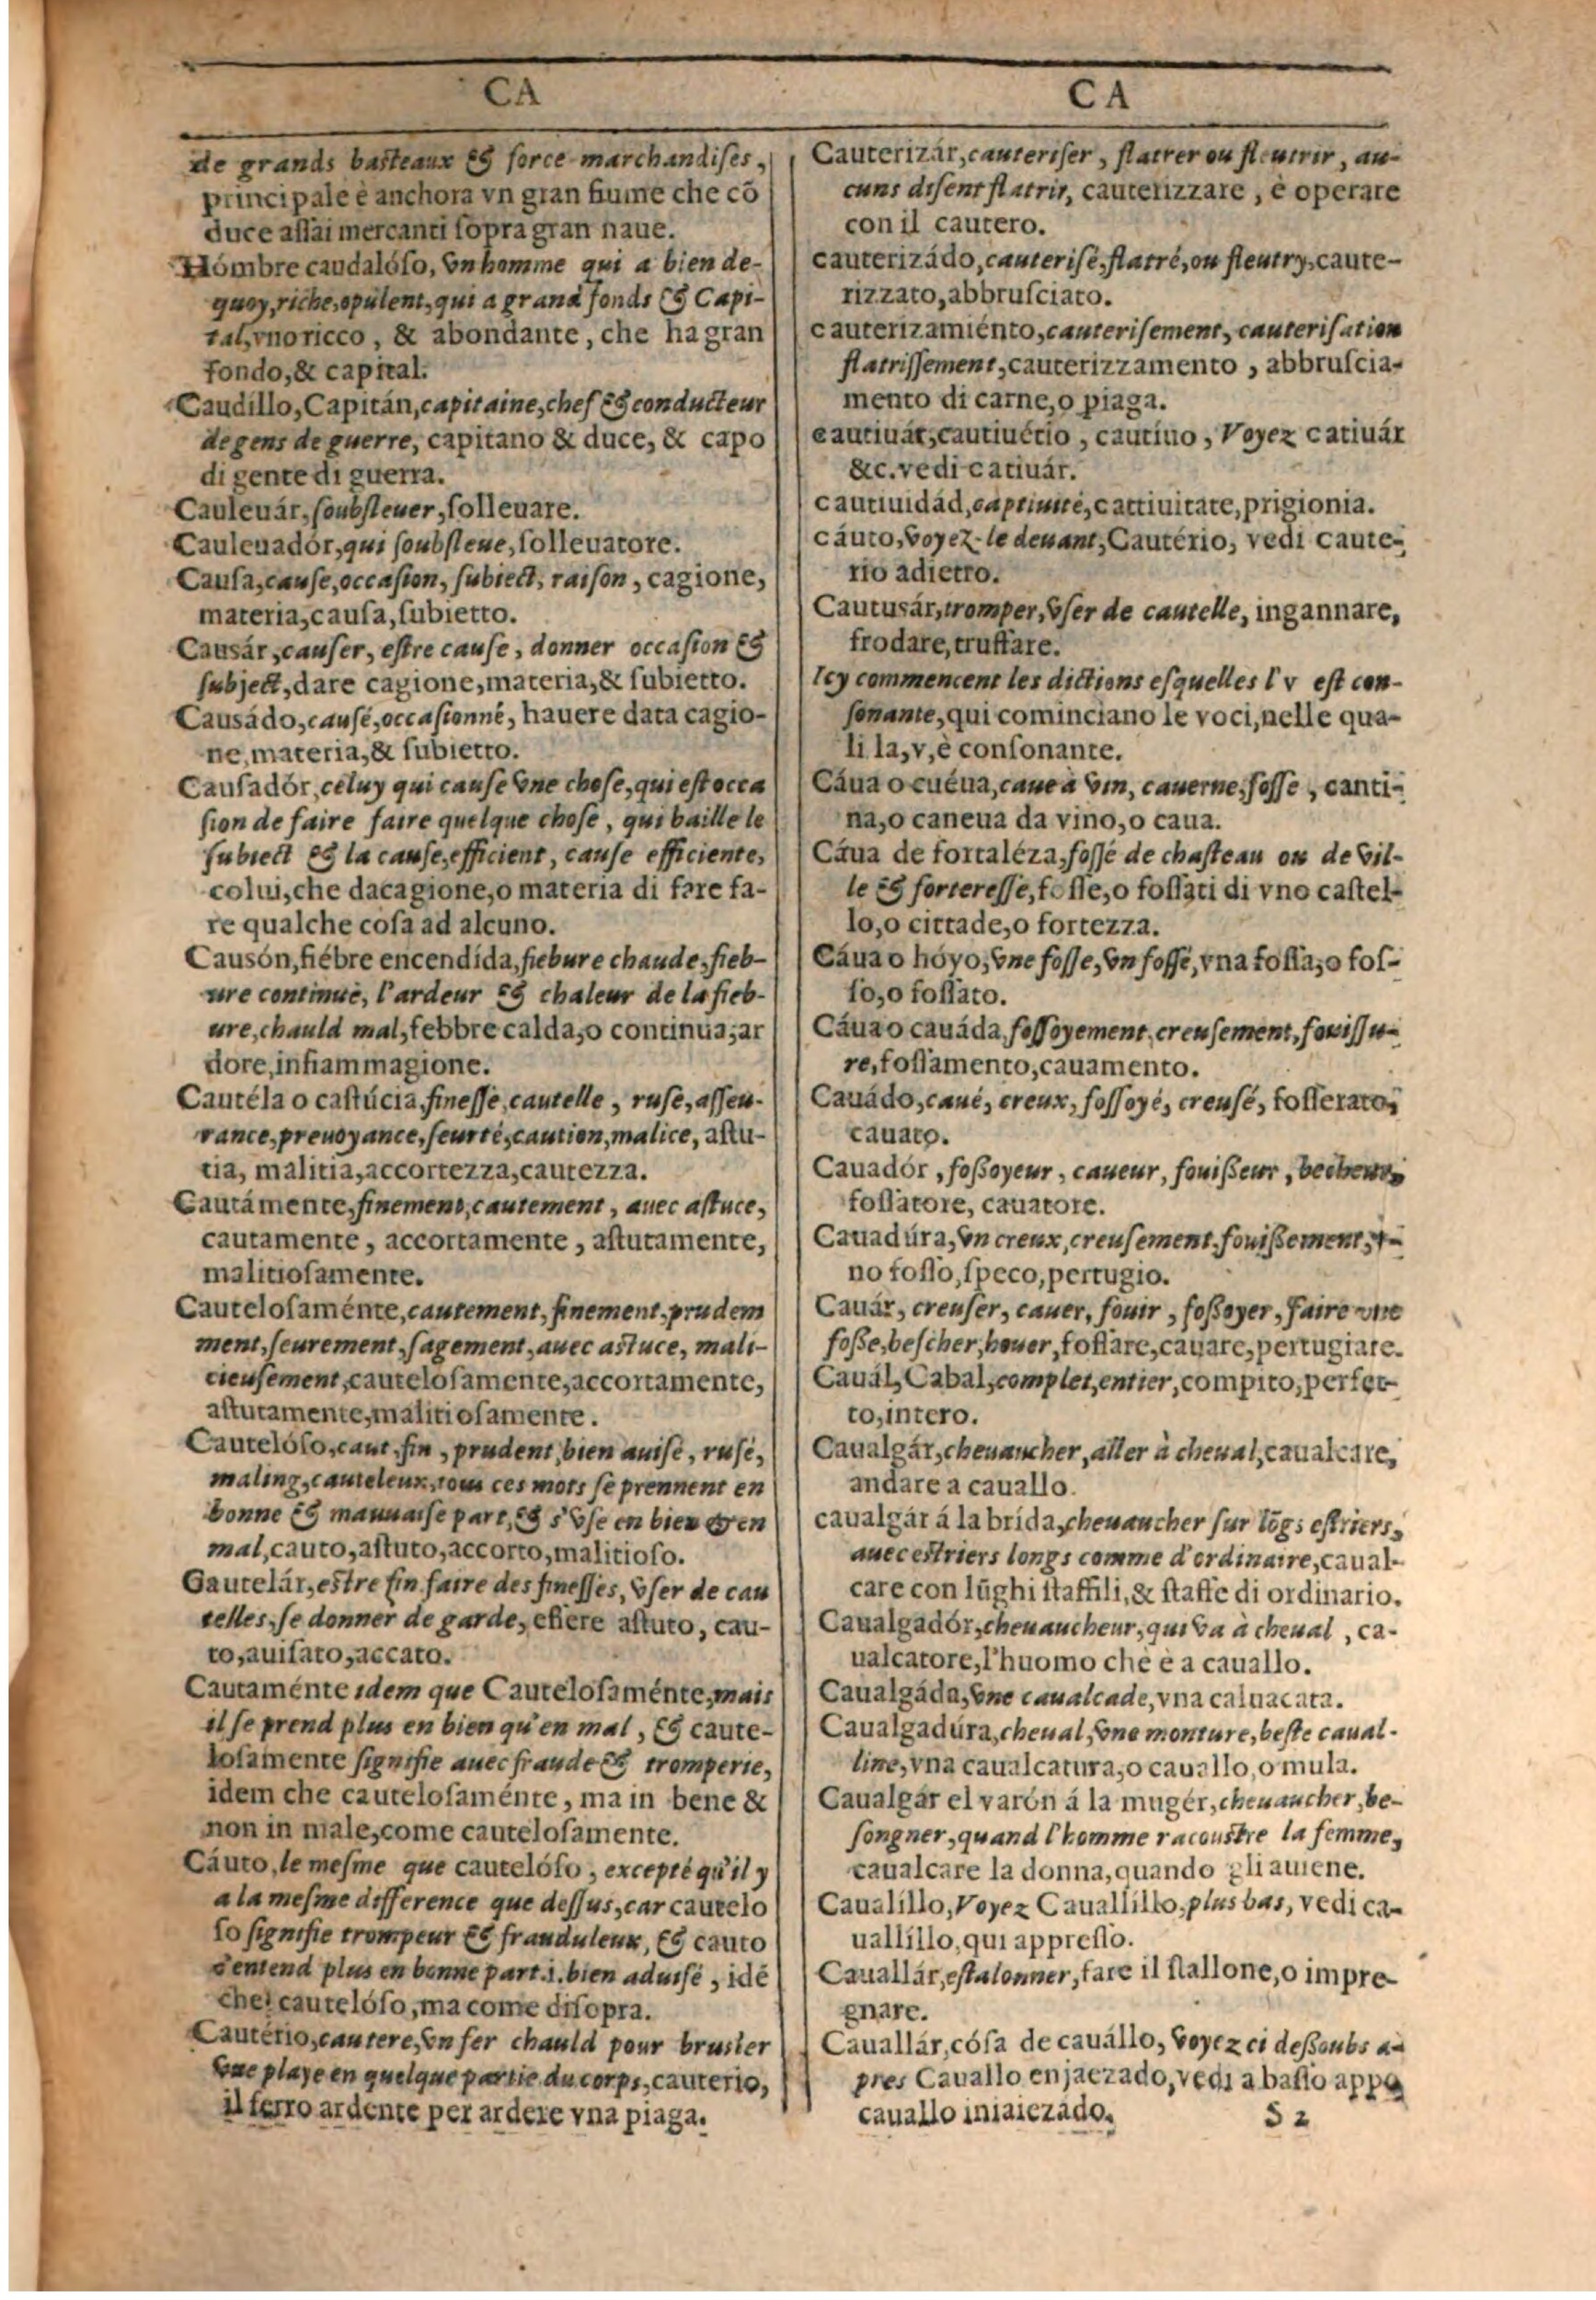 CA
de grands basteaux & force marchandiſes,
principale è anchora vn gran fiume che cõ
duce aſſai mercanti ſopra gran naue.
Hómbre caudalóſo, vn homme qui a bien de-
quoy, riche, opulent, qui a grand fonds & Capi-
tal, vno ricco, & abondante, che ha gran
fondo, & capital.
Caudillo, Capitán, capitaine, chef & conducteur
de gens de guerre, capitano & duce, & capo
di gente di guerra.
Cauleuár, ſoubſleuer, ſolleuare.
Cauleuadór, qui ſoubſleue, ſolleuatore.
Cauſa, cauſe, occaſion, ſubiect, raiſon, cagione,
materia, cauſa, ſubietto.
Causár, cauſer, eſtre cauſe, donner occaſion &
ſubject, dare cagione, materia, & ſubietto.
Causádo, cauſé, occaſionné, hauere data cagio-
ne, materia, & ſubietto.
Cauſadór, celuy qui cauſe vne choſe, qui eſt occa
ſion de faire faire quelque choſe, qui baille le
ſubiect & la cauſe, efficient, cauſe efficiente,
colui, che dacagione, o materia di fare fa-
re qualche coſa ad alcuno.
Causón, fiébre encendída, fiebure chaude, fieb-
ure continuë, l'ardeur & chaleur de la fieb-
ure, chauld mal, febbre calda, o continua, ar
dore, infiammagione.
Cautéla o caſtúcia, fineſſe, cautelle, ruſe, aſſeu-
rance, preuoyance, ſeurté, caution, malice, aſtu-
tia, malitia, accortezza, cautezza.
Cautámente, finement, cautement, auec aſtuce,
cautamente, accortamente, aſtutamente,
malitioſamente.
Cauteloſaménte, cautement, finement, prudem
ment, ſeurement, ſagement, auec aſtuce, mali-
cieuſement, cauteloſamente, accortamente,
aſtutamente, malitioſamente.
Cautelóſo, caut, fin, prudent, bien auiſé, ruſé,
maling, cauteleux, tous ces mots ſe prennent en
bonne & mauuaiſe part, & s'vſe en bien & en
mal, cauto, aſtuto, accorto, malitioſo.
Gautelár, eſtre fin, faire des fineſſes, vſer de cau
telles, ſe donner de garde, eſſere aſtuto, cau-
to, auiſato, accato.
Cautaménte idem que Cauteloſaménte, mais
il ſe prend plus en bien qu'en mal, & caute-
loſamente ſignifie auec fraude & tromperie,
idem che cauteloſaménte, ma in bene &
non in male, come cauteloſamente.
Cáuto, le meſme que cautelóſo, excepté qu'il y
a la meſme difference que deſſus, car cautelo
ſo ſignifie trompeur & frauduleux, & cauto
s'entend plus en bonne part .i. bien aduiſé, idé
che cautelóſo, ma come diſopra.
Cautério, cautere, vn fer chauld pour bruſler
vne playe en quelque partie du corps, cauterio,
il ferro ardente per ardere vna piaga.
CA
Cauterizár, cauteriſer, flatrer ou fleutrir, au-
cuns diſent flatrir, cauterizzare, è operare
con il cautero.
cauterizádo, cauteriſé, flatré, ou fleutry, caute-
rizzato, abbruſciato.
cauterizamiénto, cauteriſement, cauteriſation
flatriſſement, cauterizzamento, abbruſcia-
mento di carne, o piaga.
cautiuár, cautiuério, cautíuo, Voyez catiuár
&c. vedi catiuár.
cautiuidád, captiuité, cattiuitate, prigionia.
cáuto, voyez le deuant, Cautério, vedi caute-
rio adietro.
Cautusár, tromper, vſer de cautelle, ingannare,
frodare, truffare.
Icy commencent les dictions eſquelles l'v eſt con-
ſonante, qui cominciano le voci, nelle qua-
li la, v, è conſonante.
Cáua o cuéua, caue à vin, cauerne, foſſe, canti-
na, o caneua da vino, o caua.
Cáua de fortaléza, foſſé de chaſteau ou de vil-
le & fortereſſe, foſſe, o foſſati di vno caſtel-
lo, o cittade, o fortezza.
Cáua o hóyo, vne foſſe, vn foſſé, vna foſſa, o foſ-
ſo, o foſſato.
Cáua o cauáda, foſſoyement, creuſement, fouiſſu-
re, foſſamento, cauamento.
Cauádo, caué, creux, foſſoyé, creuſé, foſſerato,
cauato.
Cauadór, foßoyeur, caueur, fouißeur, becheur,
foſſatore, cauatore.
Cauadúra, vn creux, creuſement, fouißement, v-
no foſſo, ſpeco, pertugio.
Cauár, creuſer, cauer, fouir, foßoyer, faire vne
foße, beſcher, houer, foſſare, cauare, pertugiare.
Cauál, Cabal, complet, entier, compito, perfet-
to, intero.
Caualgár, cheuaucher, aller à cheual, caualcare,
andare a cauallo.
caualgár á la brída, cheuaucher ſur lõgs eſtriers,
auec eſtriers longs comme d'ordinaire, caual-
care con lũghi ſtaffili, & ſtaffe di ordinario.
Caualgadór, cheuaucheur, qui va à cheual, ca-
ualcatore, l'huomo che è a cauallo.
Caualgáda, vne caualcade, vna caluacata.
Caualgadúra, cheual, vne monture, beſte caual-
line, vna caualcatura, o cauallo, o mula.
Caualgár el varón á la mugér, cheuaucher, be-
ſongner, quand l'homme racouſtre la femme,
caualcare la donna, quando gli auiene.
Caualíllo, Voyez Cauallíllo, plus bas, vedi ca-
uallíllo, qui appreſſo.
Cauallár, eſtalonner, fare il ſtallone, o impre-
gnare.
Cauallár, cósa de cauállo, voyez ci deßoubs a-
pres Cauallo enjaezado, vedi a baſſo appo
cauallo iniaiezádo.
S 2